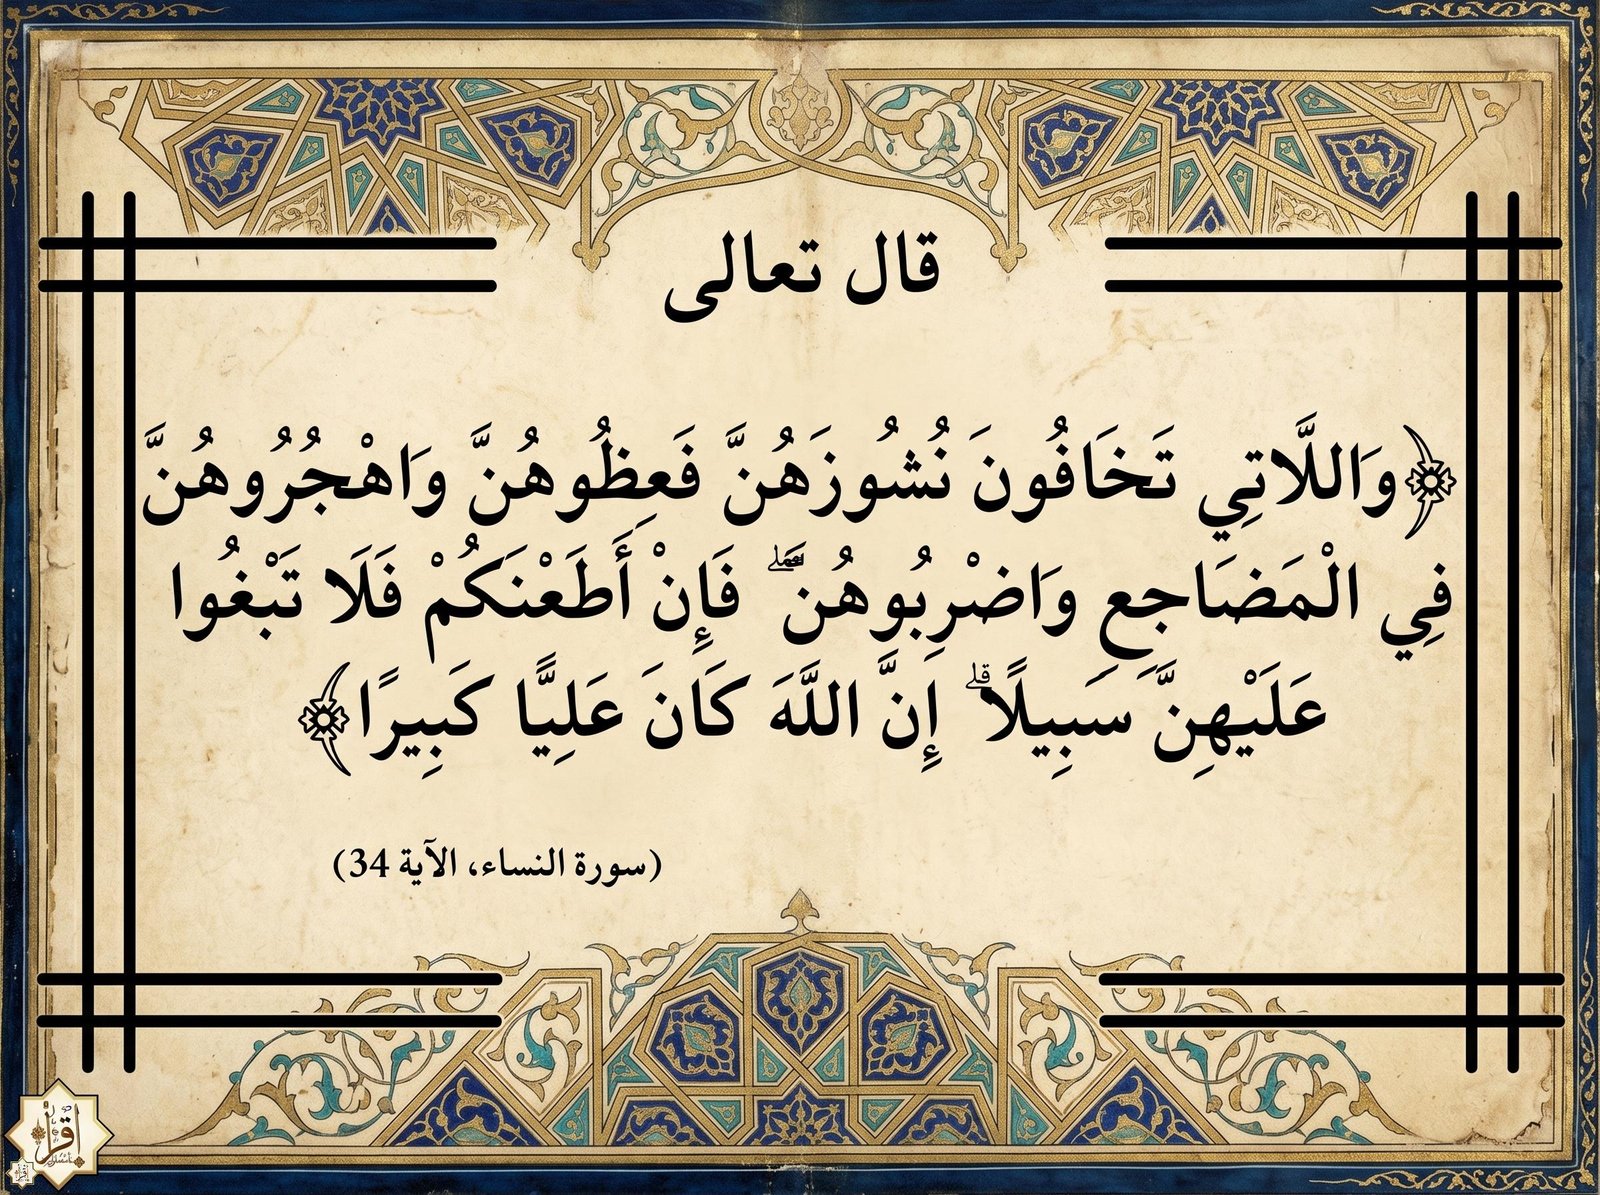 قال تعالى
﴿وَاللَّاتِي تَخَافُونَ نُشُوزَهُنَّ فَعِظُوهُنَّ وَاهْجُرُوهُنَّ
فِي الْمَضَاجِعِ وَاضْرِبُوهُنَّ ۖ فَإِنْ أَطَعْنَكُمْ فَلَا تَبْغُوا
عَلَيْهِنَّ سَبِيلًا ۗ إِنَّ اللَّهَ كَانَ عَلِيًّا كَبِيرًا﴾
(سورة النساء، الآية 34)
اقرأ